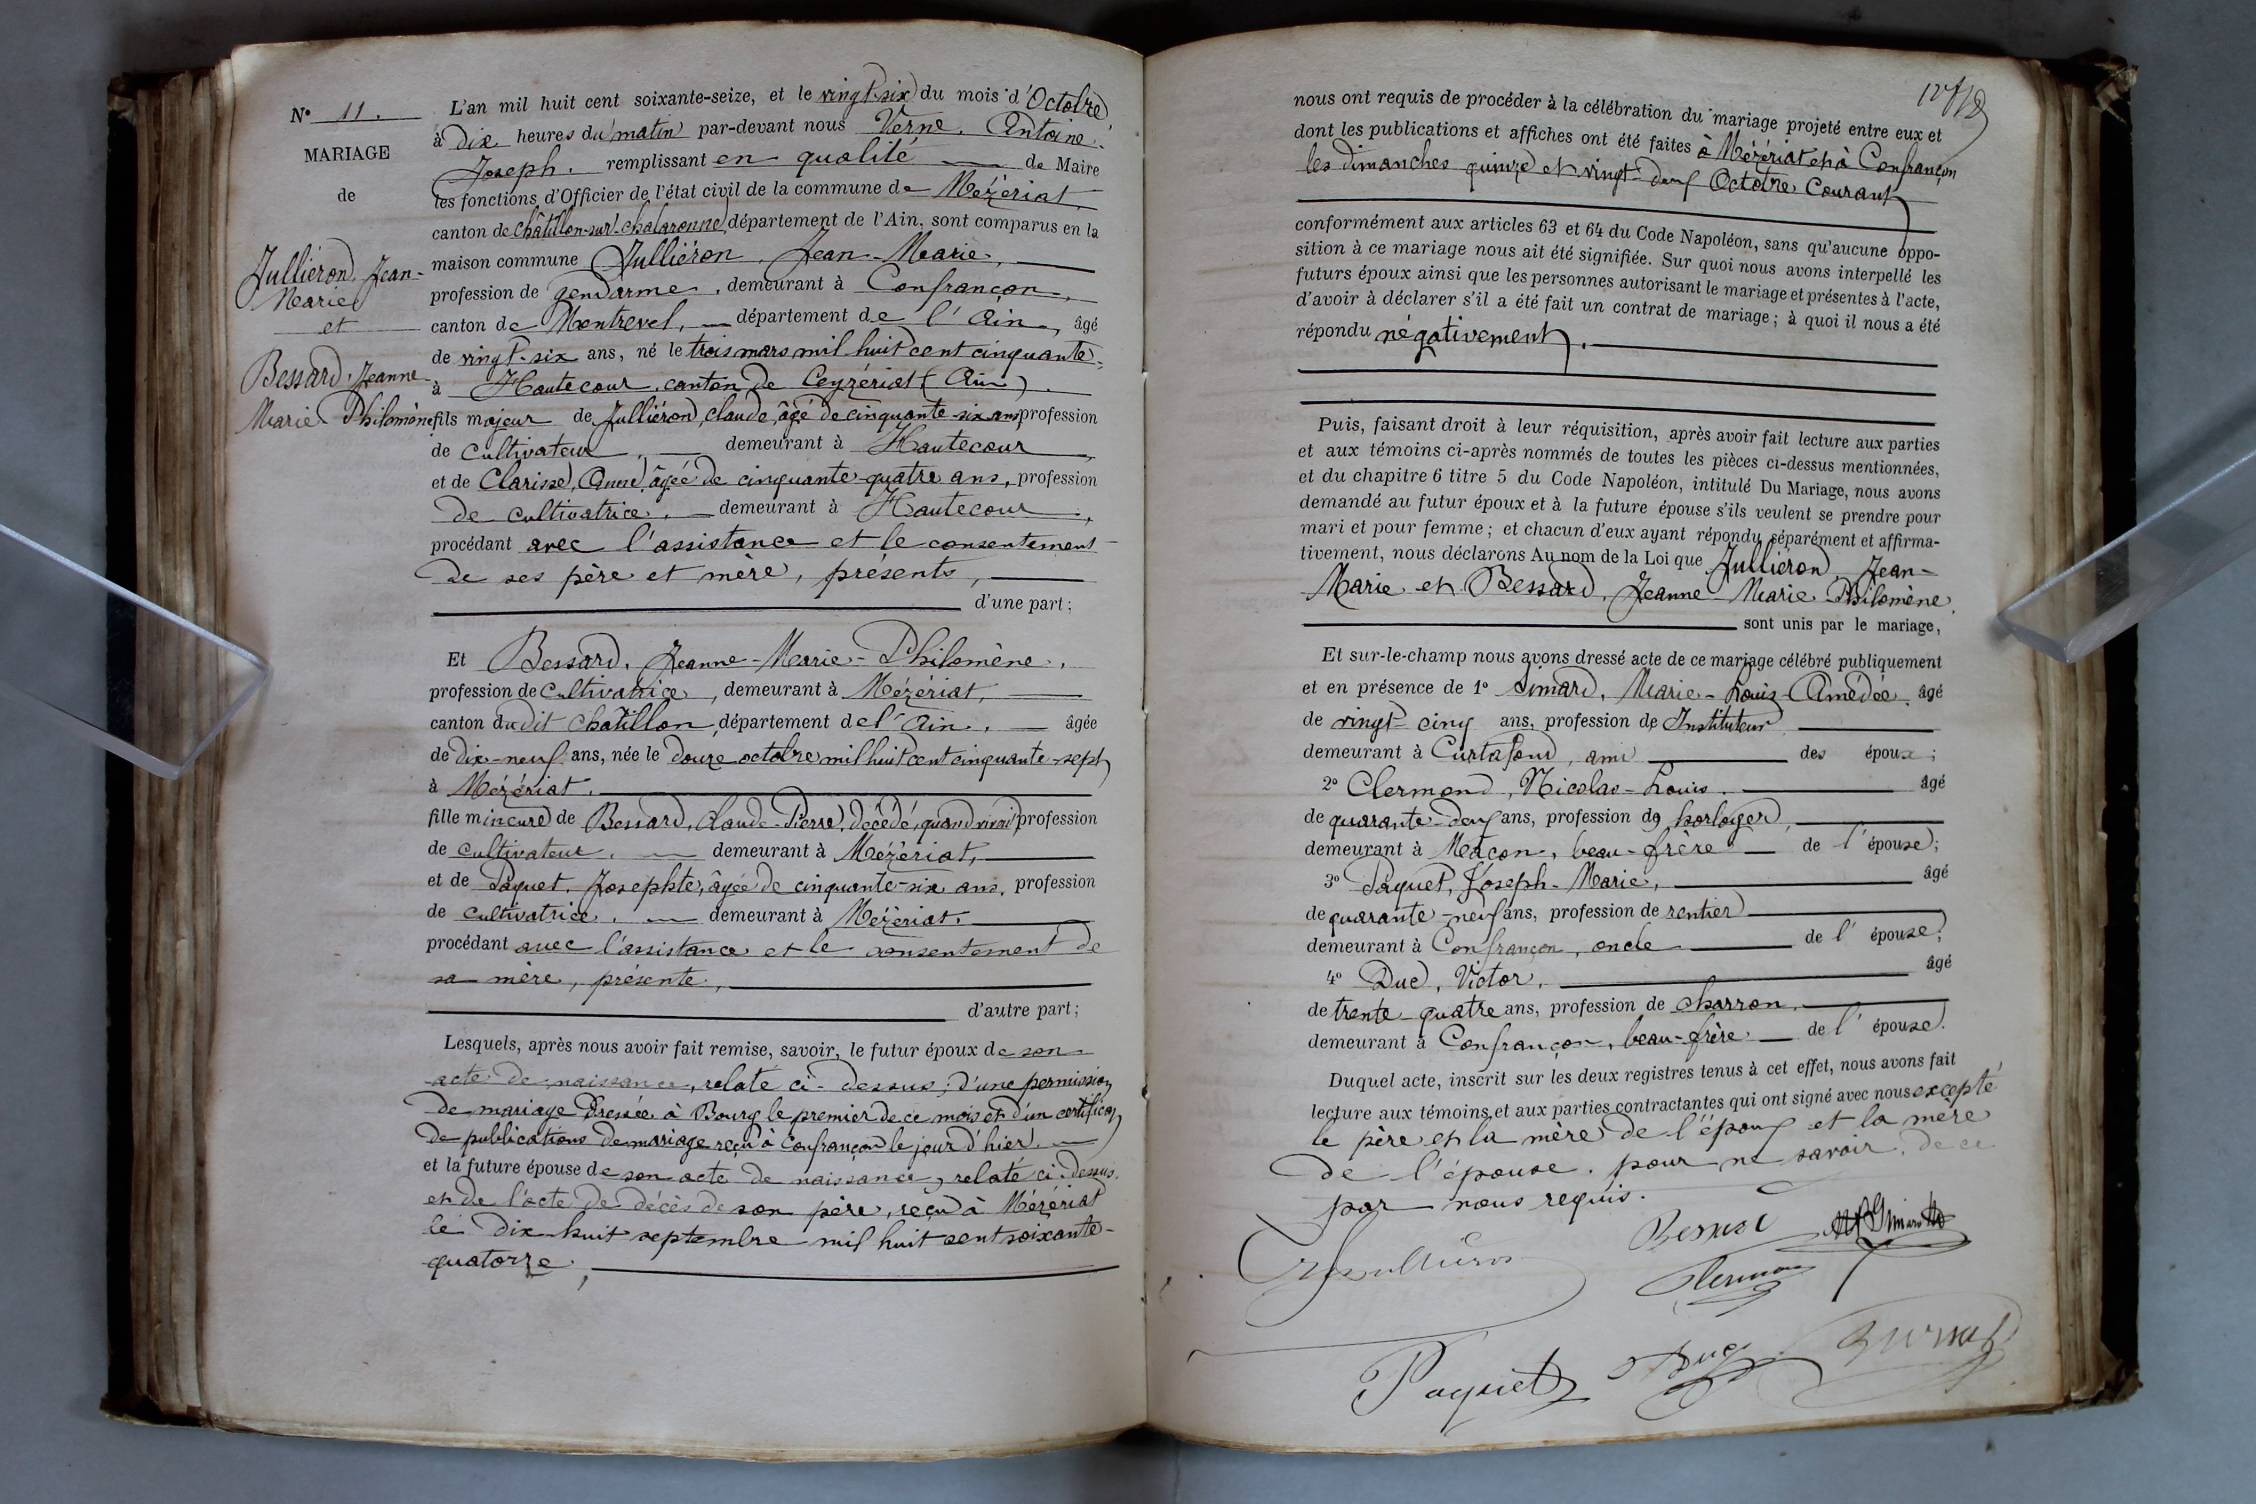 N° 11.
MARIAGE
de
Jullièron, Jean-
Marie
et
Bessard, Jeanne-
Marie Philomène
L'an mil huit cent soixante-seize, et le vingt-six du mois d'Octobre
à Dix heures du matin par-devant nous Verne, Antoine
Joseph. remplissant en qualité de Maire
les fonctions d'Officier de l'état civil de la commune de Mézériat,
canton de châtillon-sur-chalaronne, département de l'Ain, sont comparus en la
maison commune Jullièron, Jean-Marie,
profession de gendarme, demeurant à Confrançon,
canton de Montrevel, département de l'Ain, âgé
de vingt-six ans, né le trois mars mil huit cent cinquante,
à Hautecour, canton de Ceyzériat (Ain).
fils majeur de Jullièron, claude, âgé de cinquante-six ans, profession
de cultivateur, demeurant à Hautecour,
et de Clarisse, âgée de cinquante-quatre ans, profession
de cultivatrice, demeurant à Hautecour,
procédant avec l'assistance et le consentement
de ses père et mère, présents,
d'une part;
Et Bessard, Jeanne-Marie-Philomène,
profession de Cultivatrice, demeurant à Mézériat,
canton du dit châtillon, département de l'Ain, âgée
de dix-neuf ans, née le douze octobre mil huit cent cinquante-sept
à Mézériat,
fille mineure de Bessard, Claude-Pierre, décédé, quand vivait profession
de cultivateur, demeurant à Mézériat,
et de Paquet, Josephte, âgée de cinquante-six ans, profession
de cultivatrice, demeurant à Mézériat,
procédant avec l'assistance et le consentement de
sa mère, présente,
d'autre part;
Lesquels, après nous avoir fait remise, savoir, le futur époux de son
acte de naissance, relaté ci-dessus; d'une permission
de mariage dressée à Bourg le premier de ce mois et d'un certificat
de publications de mariage reçu à Confrançon le jour d'hier.
et la future épouse de son acte de naissance, relaté ci-dessus,
et de l'acte de décès de son père, reçu à Mézériat
le dix huit septembre mil huit cent soixante-
quatorze.
nous ont requis de procéder à la célébration du mariage projeté entre eux et
dont les publications et affiches ont été faites à Mézériat et à Confrançon
les dimanches quinze et vingt-deux Octobre Courant
conformément aux articles 63 et 64 du Code Napoléon, sans qu'aucune oppo-
sition à ce mariage nous ait été signifiée. Sur quoi nous avons interpellé les
futurs époux ainsi que les personnes autorisant le mariage et présentes à l'acte,
d'avoir à déclarer s'il a été fait un contrat de mariage; à quoi il nous a été
répondu négativement.
Puis, faisant droit à leur réquisition, après avoir fait lecture aux parties
et aux témoins ci-après nommés de toutes les pièces ci-dessus mentionnées,
et du chapitre 6 titre 5 du Code Napoléon, intitulé Du Mariage, nous avons
demandé au futur époux et à la future épouse s'ils veulent se prendre pour
mari et pour femme; et chacun d'eux ayant répondu séparément et affirma-
tivement, nous déclarons Au nom de la Loi que Jullièron, Jean-
Marie et Bessard, Jeanne-Marie-Philomène,
sont unis par le mariage,
Et sur-le-champ nous avons dressé acte de ce mariage célébré publiquement
et en présence de 1° Simard, Marie-Louis-Amédée, âgé
de vingt-cinq ans, profession de Instituteur
demeurant à Curtafond, ami des époux;
2° Clermond, Nicolas-Louis, âgé
de quarante-deux ans, profession de horloger,
demeurant à Mâcon, beau-frère de l'épouse;
3° Paquet, Joseph-Marie, âgé
de quarante-neuf ans, profession de rentier
demeurant à Confrançon, oncle de l'épouse;
4° Duc, Victor, âgé
de trente-quatre ans, profession de charron,
demeurant à Confrançon, beau-frère de l'épouse.
Duquel acte, inscrit sur les deux registres tenus à cet effet, nous avons fait
lecture aux témoins et aux parties contractantes qui ont signé avec nous excepté
le père et la mère de l'époux et la mère
de l'épouse, pour ne savoir, de ce
par nous requis.
Paquet Duc